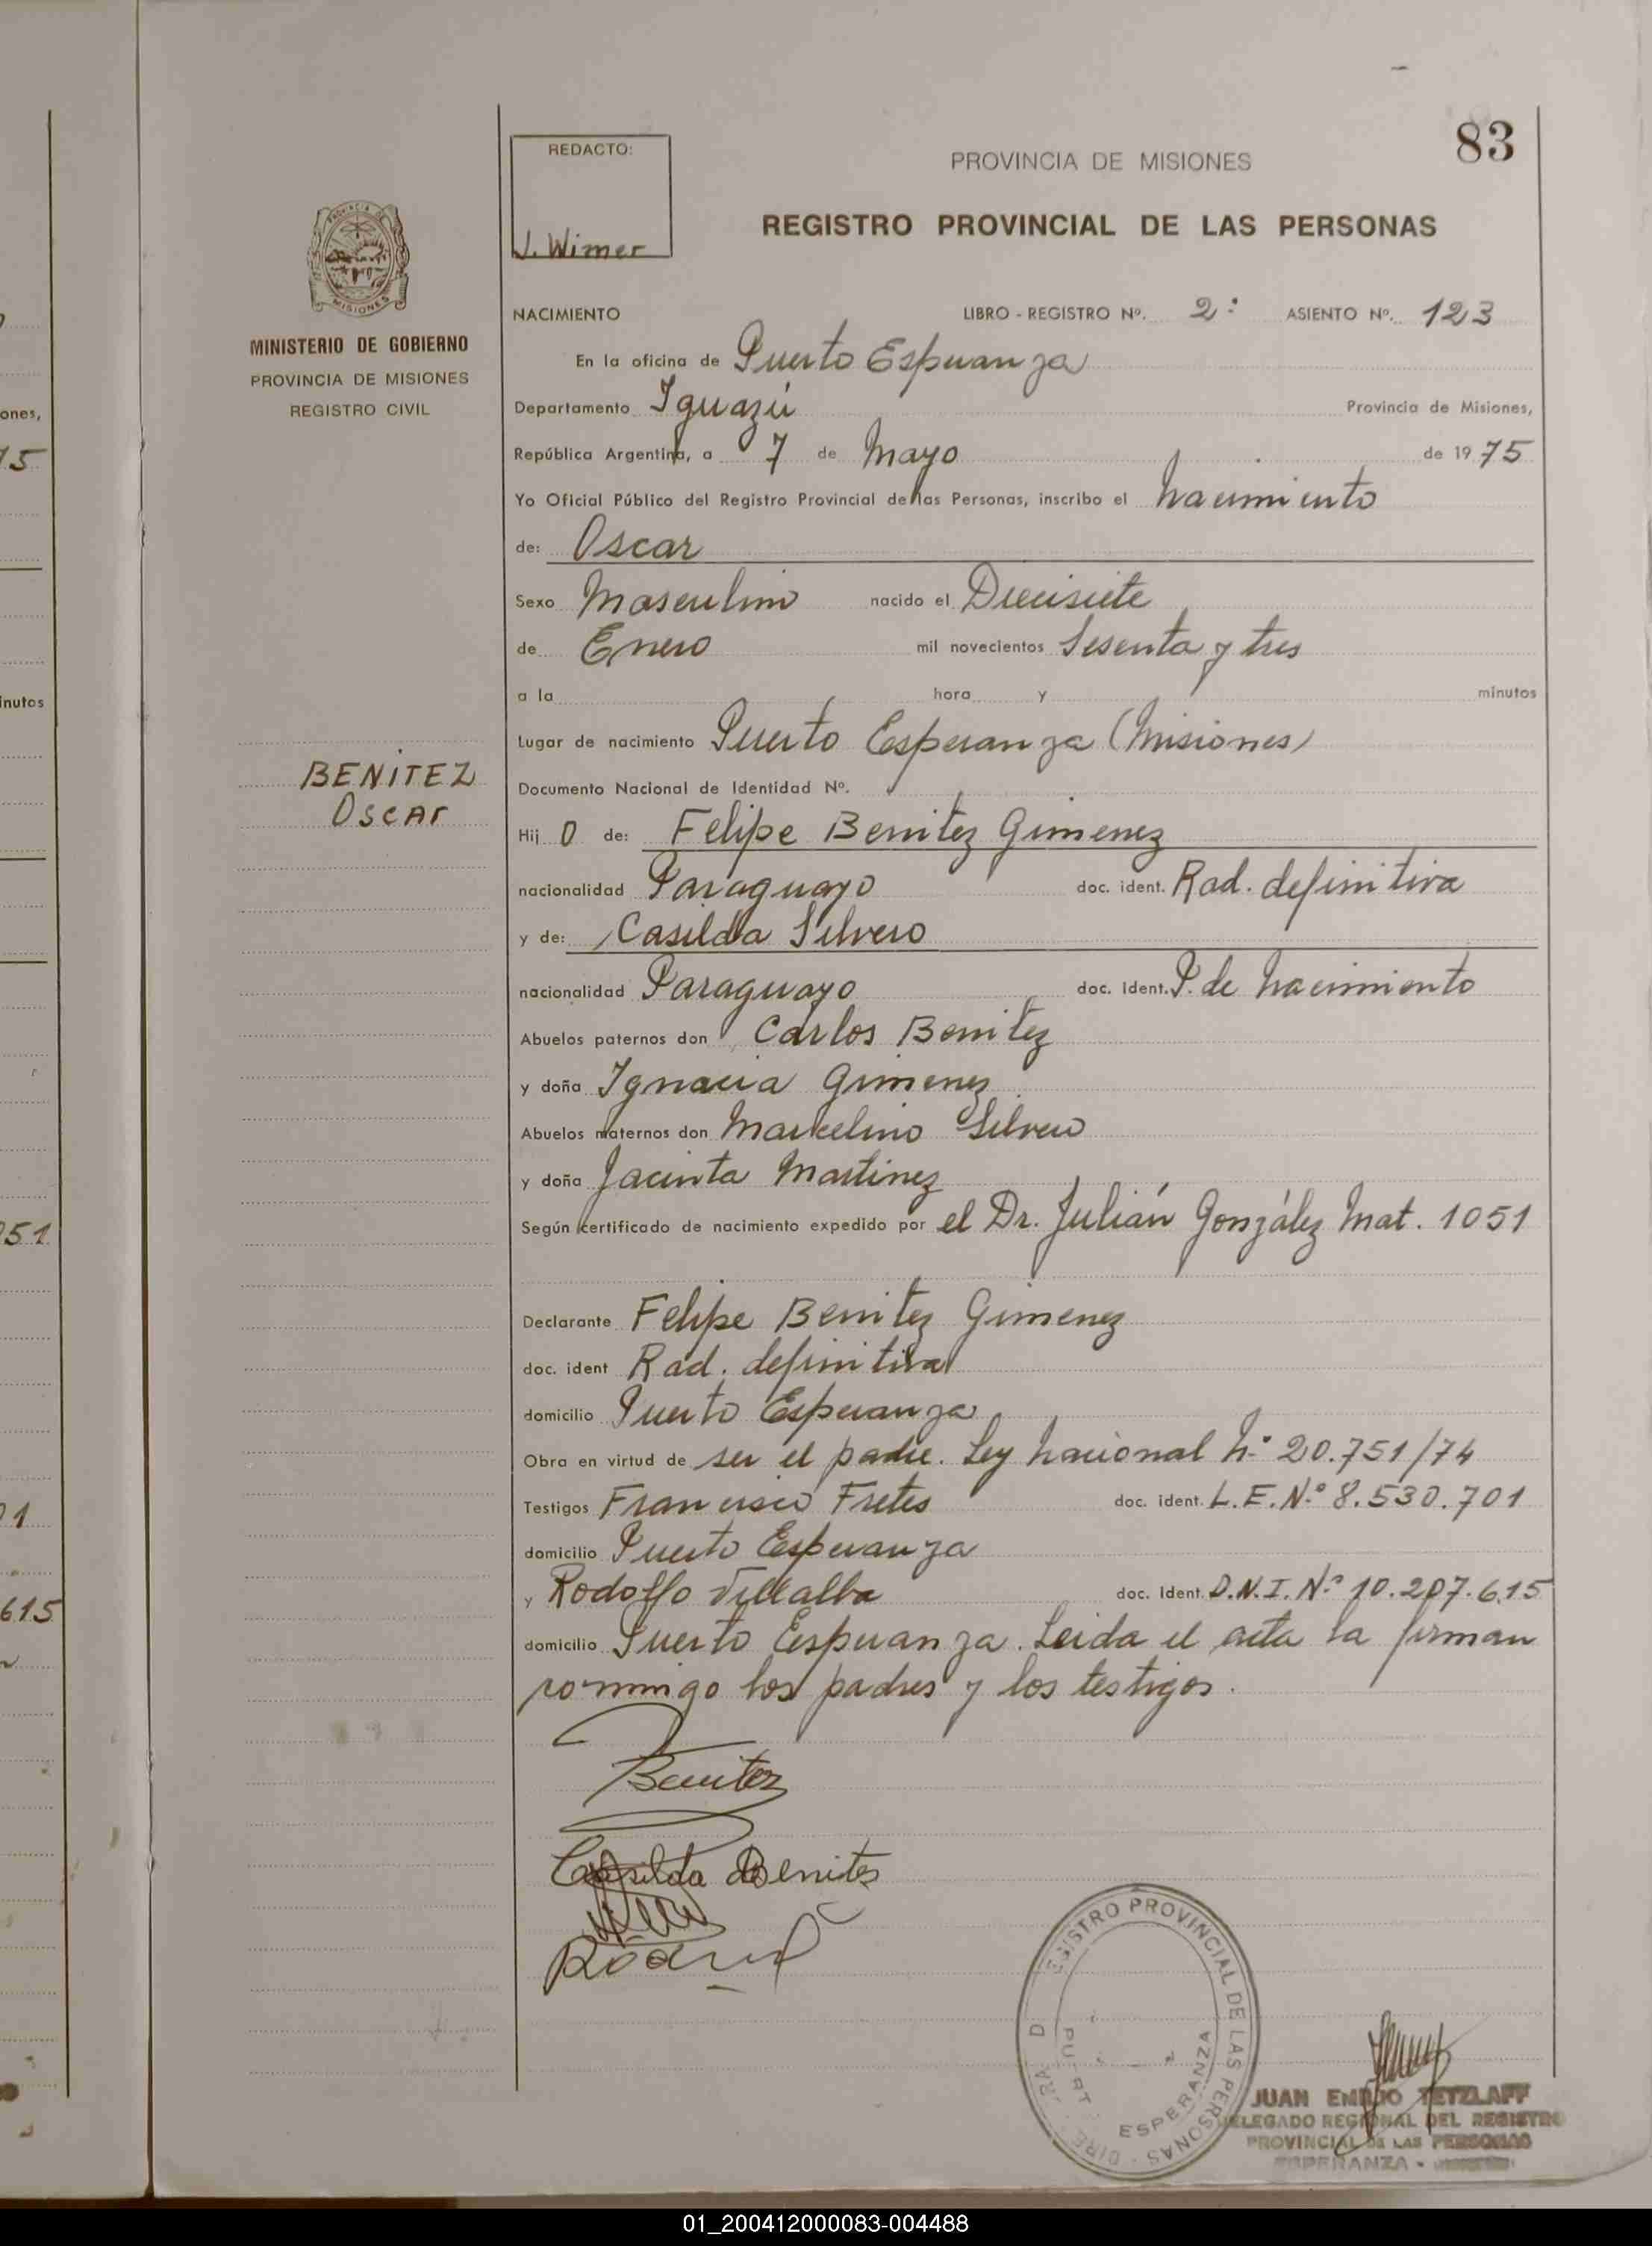 83
REDACTO:
J. Wimer
PROVINCIA DE MISIONES
REGISTRO PROVINCIAL DE LAS PERSONAS
PROVINCIA DE
MISIONES
MINISTERIO DE GOBIERNO
PROVINCIA DE MISIONES
REGISTRO CIVIL
NACIMIENTO LIBRO - REGISTRO Nº. 2º ASIENTO Nº. 123
En la oficina de Puerto Esperanza
Departamento Iguazú Provincia de Misiones,
República Argentina, a 7 de Mayo de 1975
Yo Oficial Público del Registro Provincial de las Personas, inscribo el Nacimiento
de: Oscar
Sexo Masculino nacido el Diecisiete
de Enero mil novecientos Sesenta y tres
a la hora y minutos
Lugar de nacimiento Puerto Esperanza (Misiones)
BENITEZ
Oscar
Documento Nacional de Identidad Nº.
Hij o de: Felipe Benitez Gimenez
nacionalidad Paraguayo doc. ident. Rad. definitiva
y de: Casilda Silvero
nacionalidad Paraguayo doc. ident. P. de Nacimiento
Abuelos paternos don Carlos Benitez
y doña Ignacia Gimenez
Abuelos maternos don Marcelino Silvero
y doña Jacinta Martinez
Según certificado de nacimiento expedido por el Dr. Julián González Mat. 1051
Declarante Felipe Benitez Gimenez
doc. ident Rad. definitiva
domicilio Puerto Esperanza
Obra en virtud de ser el padre. Ley Nacional Nº 20.751/74
Testigos Francisco Fretes doc. ident. L.E.Nº 8.530.701
domicilio Puerto Esperanza
y Rodolfo Villalba doc. ident. D.N.I.Nº 10.207.615
domicilio Puerto Esperanza. Leida el acta la firman
conmigo los padres y los testigos.
Benitez
Casilda de Benites
REGISTRO PROVINCIAL DE LAS PERSONAS
ESPERANZA
JUAN EMILIO TETZLAFF
DELEGADO REGIONAL DEL REGISTRO
PROVINCIAL DE LAS PERSONAS
ESPERANZA -
ones,
15
inutos
051
01
615
01_200412000083-004488